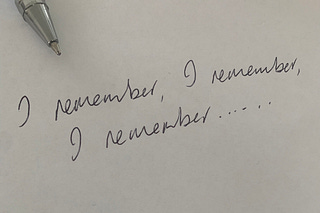 I remember, I remember,
I remember......